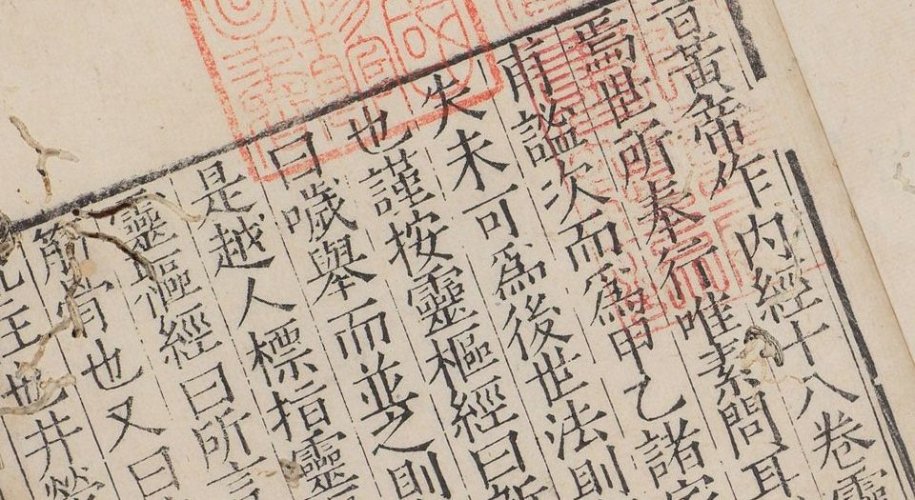 昔黃帝作內經十八卷靈
焉世所奉行唯素問耳
甫謐次而爲甲乙諸家
失未可爲後世法則
也謹按靈樞經曰新
曰噦舉而並之則
是越人標指靈
靈樞經曰所言
骨也又曰
注也井滎